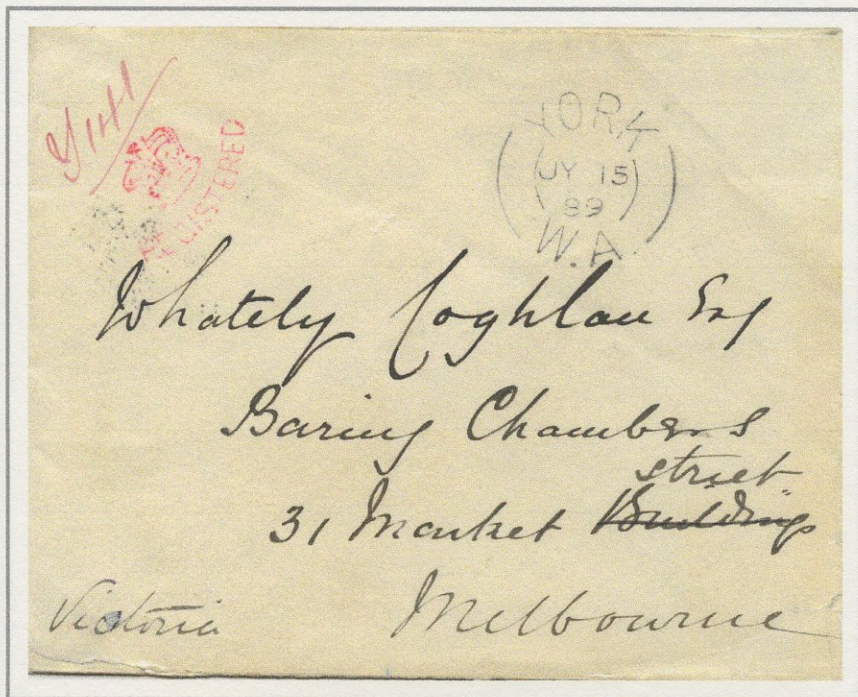 REGISTERED
YORK
JY 15
89
W.A.
Whately Coghlan Esq
Baring Chambers
street
31 Market Buildings
Victoria Melbourne